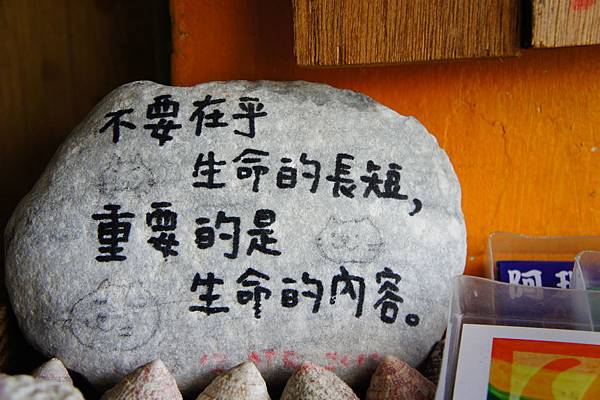 不要在乎
生命的長短,
重要的是
生命的內容。
阿